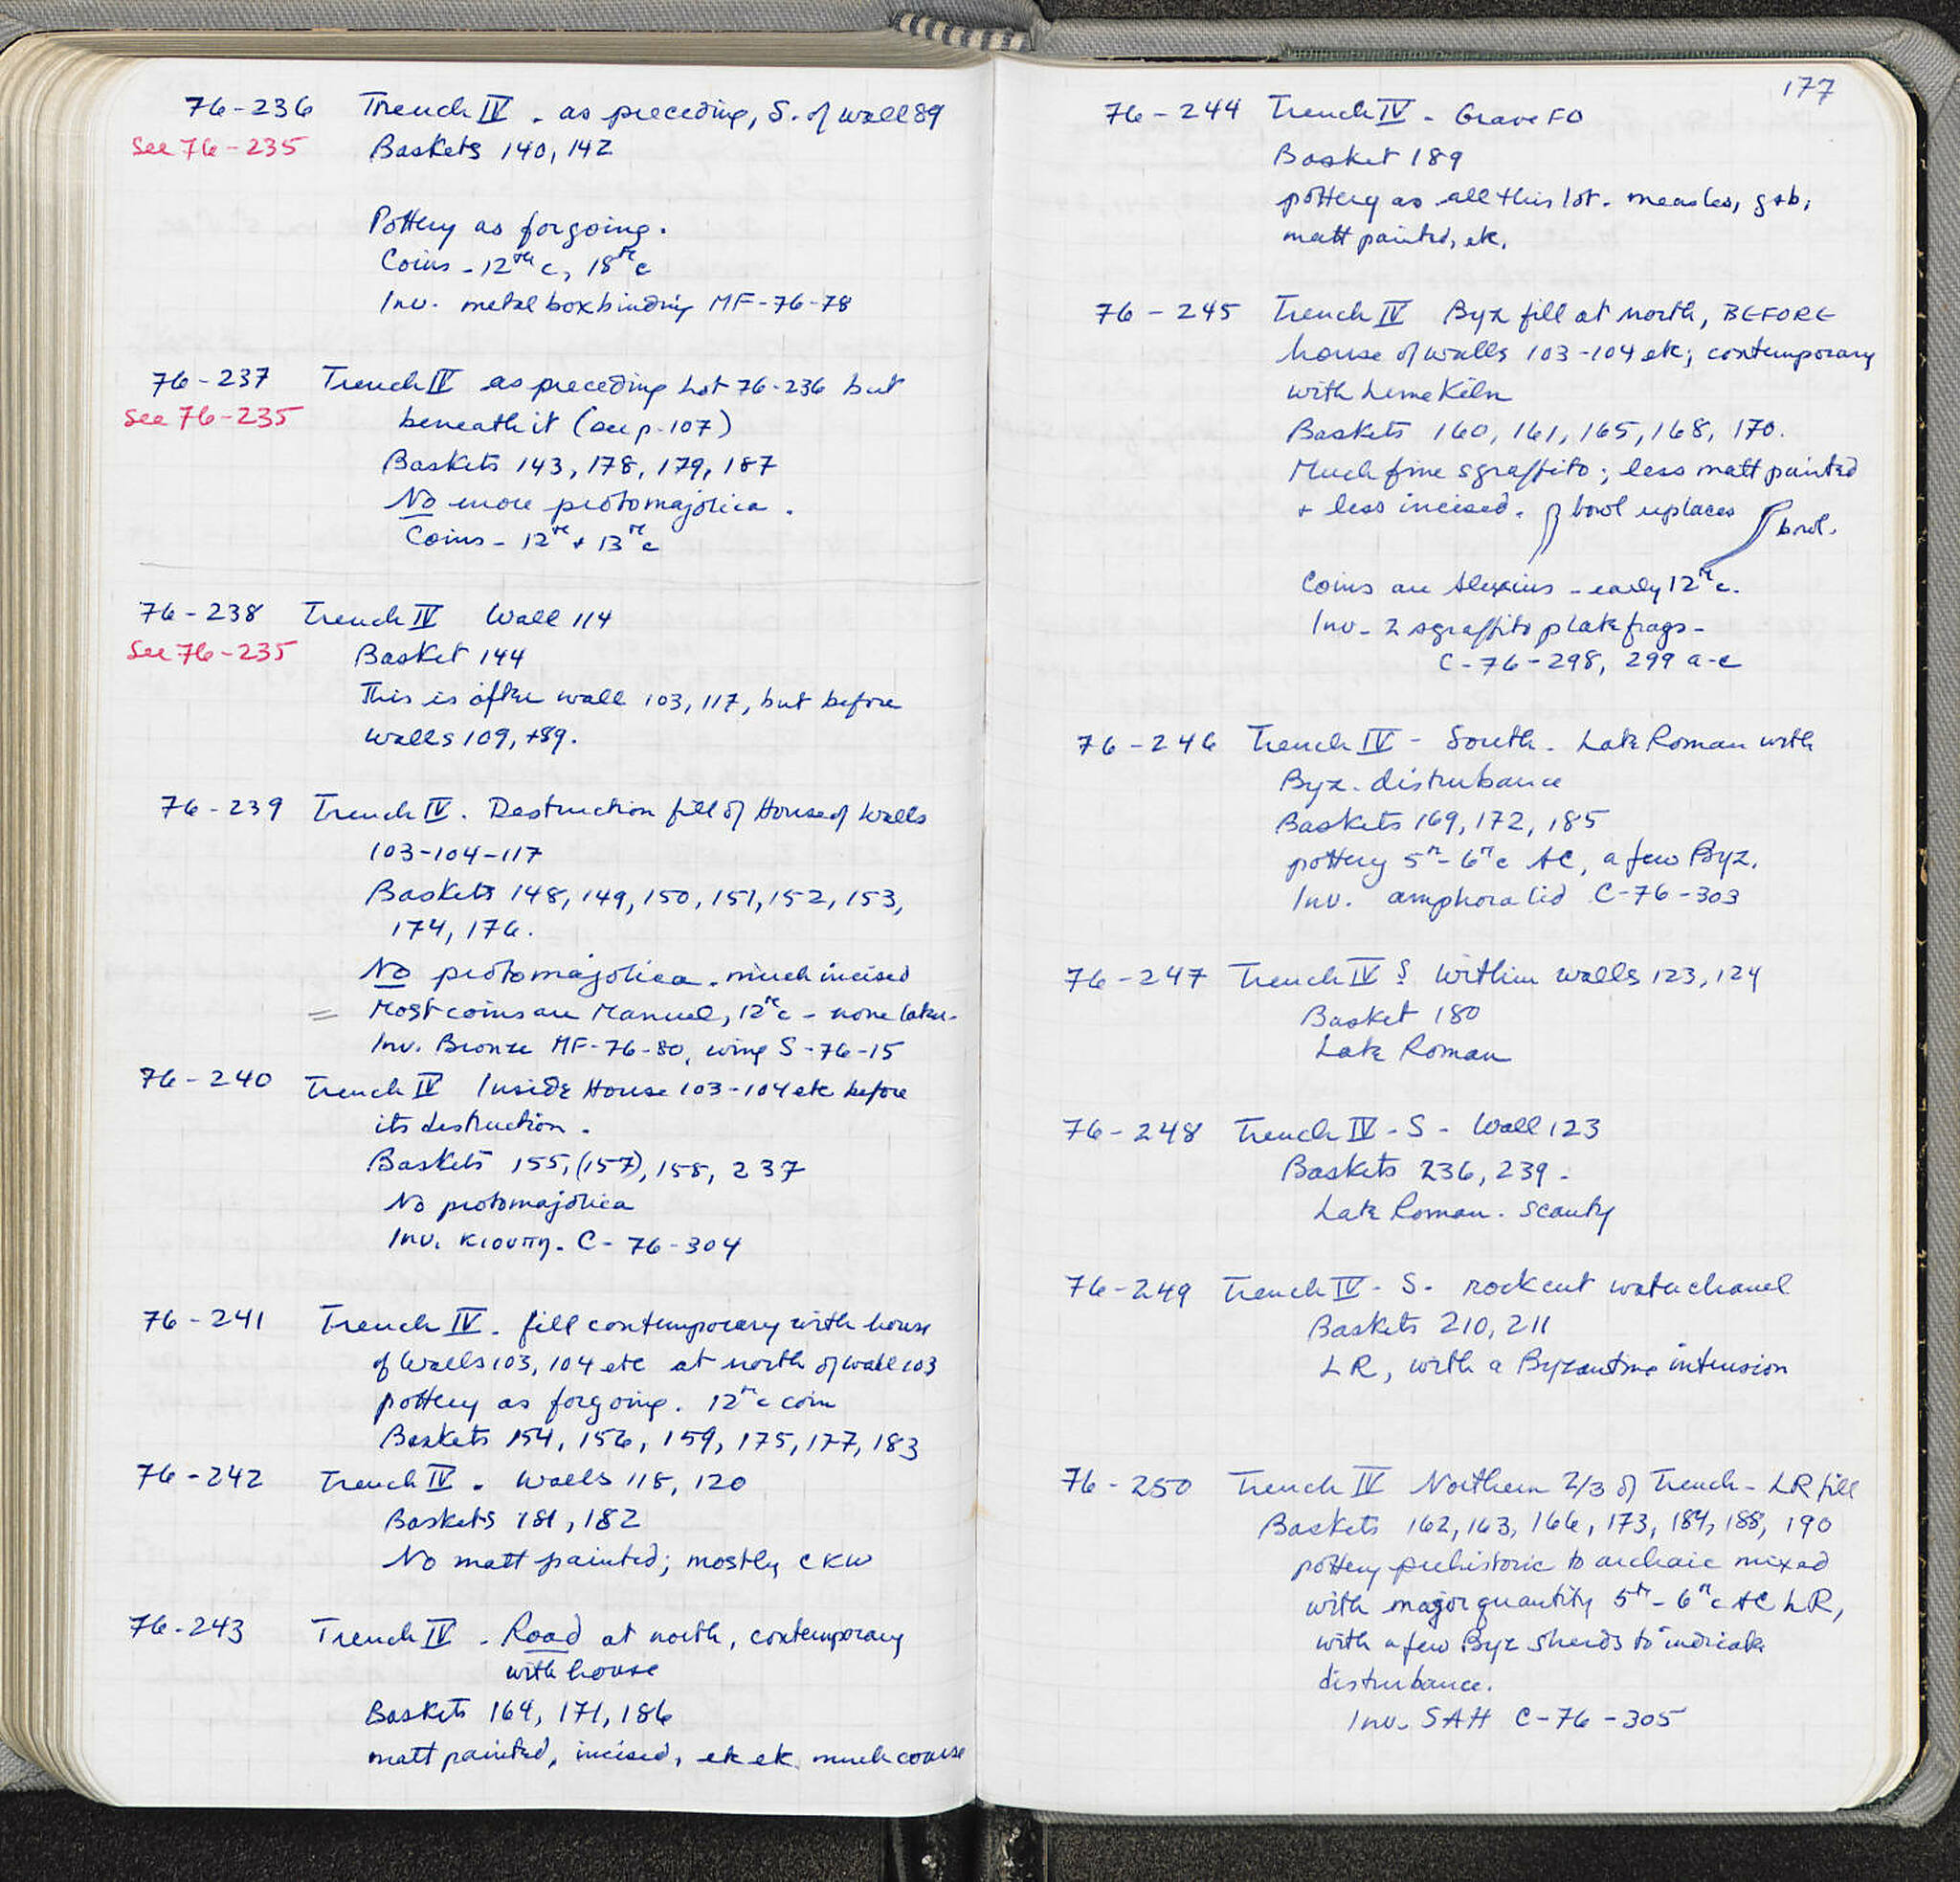 76-236 Trench IV - as preceding, S. of wall 89
See 76-235 Baskets 140, 142
Pottery as forgoing.
Coins - 12th c, 18th c
Inv. metal box binding MF-76-78
76-237 Trench IV as preceding Lot 76-236 but
See 76-235 beneath it (see p. 107)
Baskets 143, 178, 179, 187
No more protomajolica.
Coins - 12th + 13th c
76-238 Trench IV Wall 114
See 76-235 Basket 144
This is after wall 103, 117, but before
walls 109, +89.
76-239 Trench IV. Destruction fill of House of Walls
103-104-117
Baskets 148, 149, 150, 151, 152, 153,
174, 176.
No protomajolica. much incised
= Most coins are Manuel, 12th c - none later.
Inv. Bronze MF-76-80, wing S-76-15
76-240 Trench IV Inside House 103-104 etc before
its destruction.
Baskets 155, (157), 158, 237
No protomajolica
Inv. κιουπη. C-76-304
76-241 Trench IV. fill contemporary with house
of Walls 103, 104 etc at north of wall 103
pottery as forgoing. 12th c coin
Baskets 154, 156, 159, 175, 177, 183
76-242 Trench IV. Walls 118, 120
Baskets 181, 182
No matt painted; mostly CKW
76-243 Trench IV - Road at north, contemporary
with house
Baskets 164, 171, 186
matt painted, incised, etc etc. much coarse
177
76-244 Trench IV - Grave FO
Basket 189
pottery as all this lot. measles, g+b,
matt painted, etc.
76-245 Trench IV Byz fill at north, BEFORE
house of walls 103-104 etc; contemporary
with Lime Kiln
Baskets 160, 161, 165, 168, 170.
Much fine sgraffito; less matt painted
+ less incised. bowl replaces bowl.
Coins are Alexius - early 12th c.
Inv - 2 sgraffito plate frags -
C-76-298, 299 a-c
76-246 Trench IV - South. Late Roman with
Byz. disturbance
Baskets 169, 172, 185
pottery 5th-6th c AC, a few Byz.
Inv. amphora lid C-76-303
76-247 Trench IV S. Within walls 123, 124
Basket 180
Late Roman
76-248 Trench IV - S - Wall 123
Baskets 236, 239.
Late Roman. scanty
76-249 Trench IV - S. rockcut water chanel
Baskets 210, 211
LR, with a Byzantine intrusion
76-250 Trench IV Northern 2/3 of Trench - LR fill
Baskets 162, 163, 166, 173, 184, 188, 190
pottery prehistoric to archaic mixed
with major quantity 5th-6th c AC LR,
with a few Byz sherds to indicate
disturbance.
Inv. SAH C-76-305